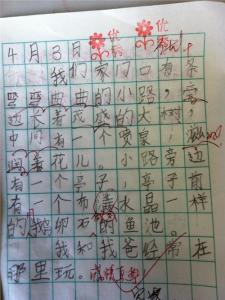 优 优
4月3日 秀
我们家门口有条
弯弯曲曲的小路，旁
边长着茂盛的大树，
中间有一个喷泉，滋
润着花儿。小路旁边
有一个亭子，亭子前
有一个布满水晶一样
的鹅卵石的鱼池。
我和我爸经常在
那里玩。